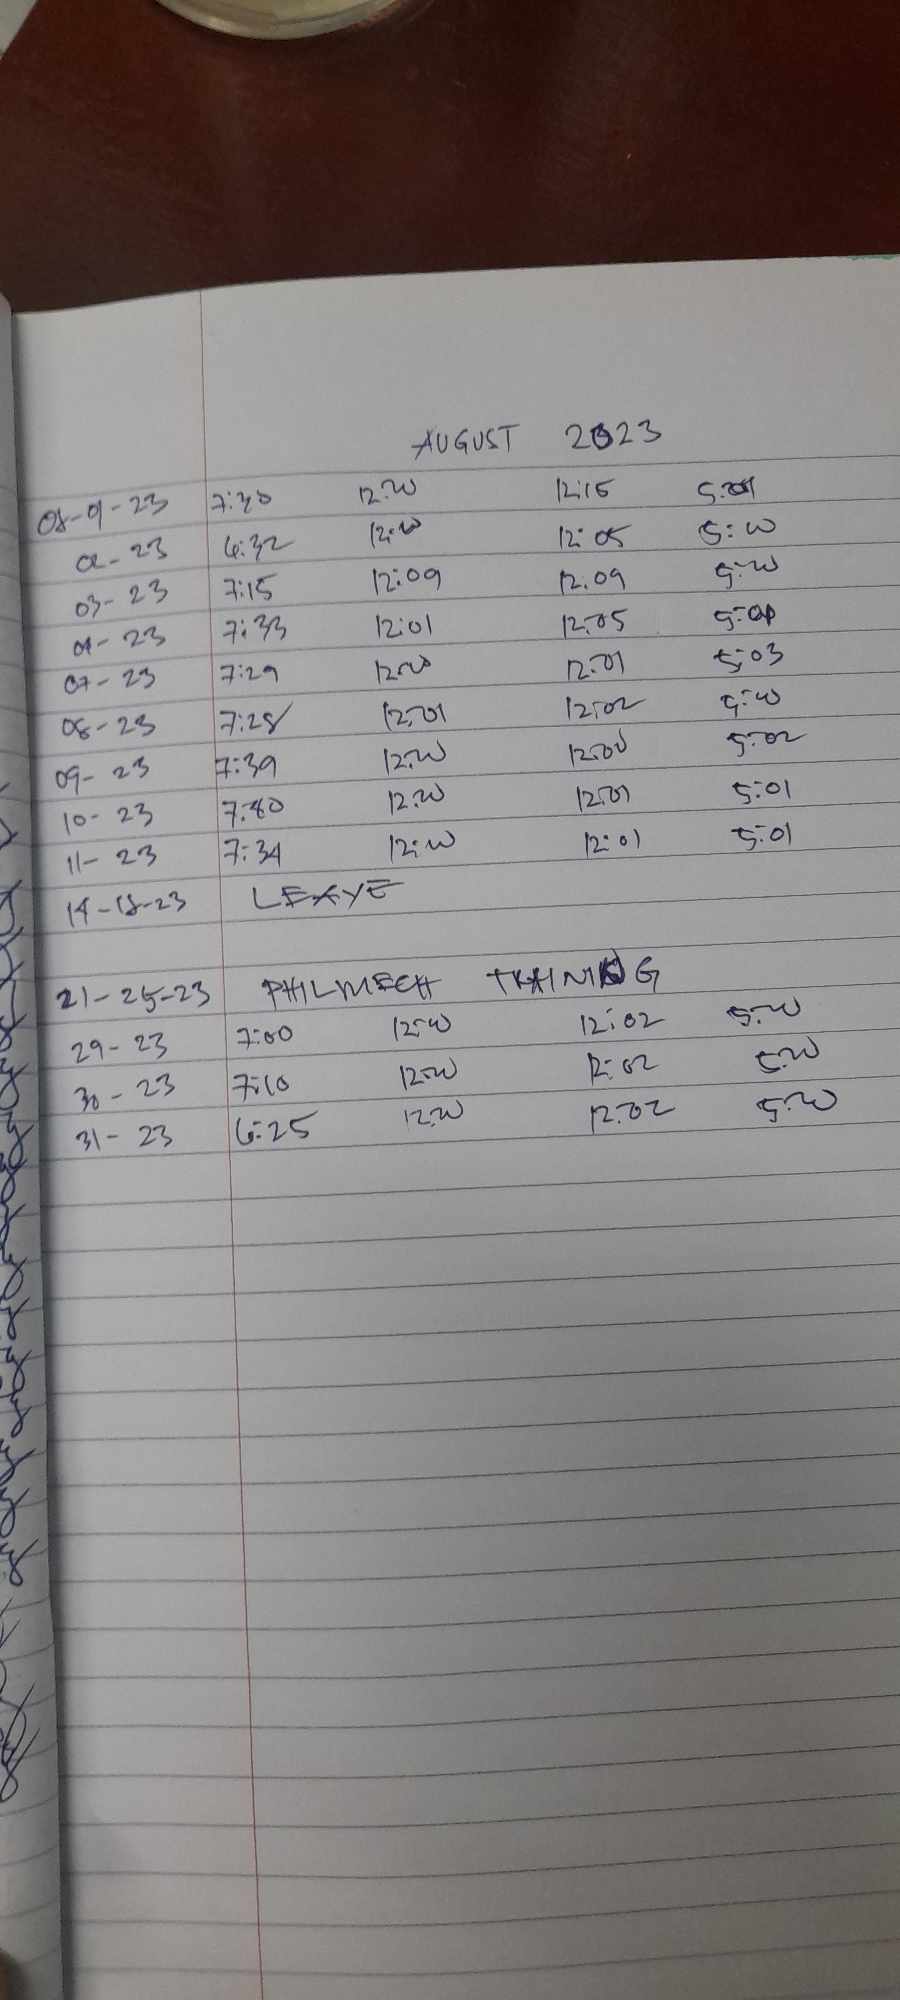 AUGUST 2023
08-01-23 7:30 12:00 12:15 5:01
02-23 6:32 12:00 12:05 5:00
03-23 7:15 12:09 12:09 5:00
04-23 7:33 12:01 12:05
07-23 7:29 12:00 12:01 5:03
08-23 7:28 12:01 12:02 5:00
09-23 7:39 12:00 12:00 5:02
10-23 12:00 12:01 5:01
11-23 7:34 12:00 12:01 5:01
14-18-23 LEAVE
21-25-23 PHILMECH TRAINING
29-23 7:00 12:00 12:02 5:00
30-23 7:10 12:00 12:02 5:00
31-23 6:25 12:00 12:02 5:00